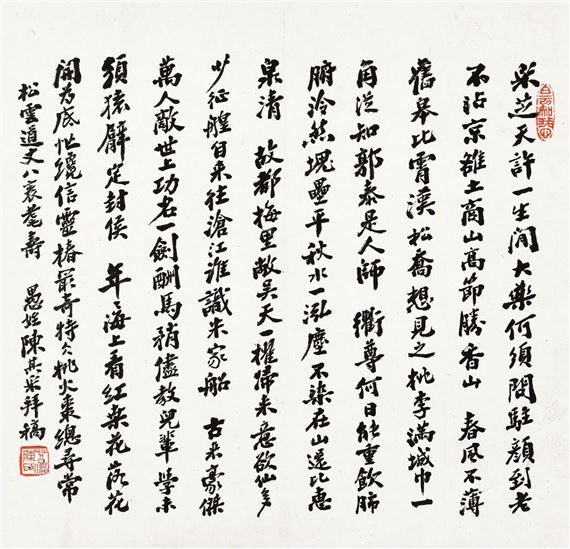 采芝天許一生閒大藥何須問駐顏到老
不玷京雒土商山高節勝香山 春風不薄
舊皋比霄漢松喬想見之桃李滿城巾一
角從知郭泰是人師 衢尊何日能重飲肺
腑泠然塊壘平秋水一泓塵不染在山還比惠
泉清 故都梅里敞吳天一櫂歸來意欲仙多
少征艎自來往滄江誰識米家船 古來豪傑
萬人敵世上功名一劍酬馬矟儘教兒輩學未
須猿臂定封侯 年々海上看紅桑花落花
開為底忙纔信靈椿最奇特冰桃火棗總尋常
松雲道丈八袠耄壽 愚姪陳其采拜稿